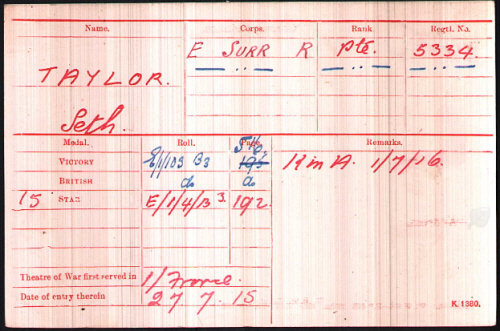 Name. Corps. Rank. Regtl. No.
E SURR R Pte. 5334.
TAYLOR.
Seth.
Medal. Roll. Page. Remarks.
VICTORY E/1/103 B3 K in A. 1/7/16.
BRITISH do do
15 STAR E/1/4/B3. 192.
Theatre of War first served in 1/France.
Date of entry therein 27 7. 15.
K. 1380.